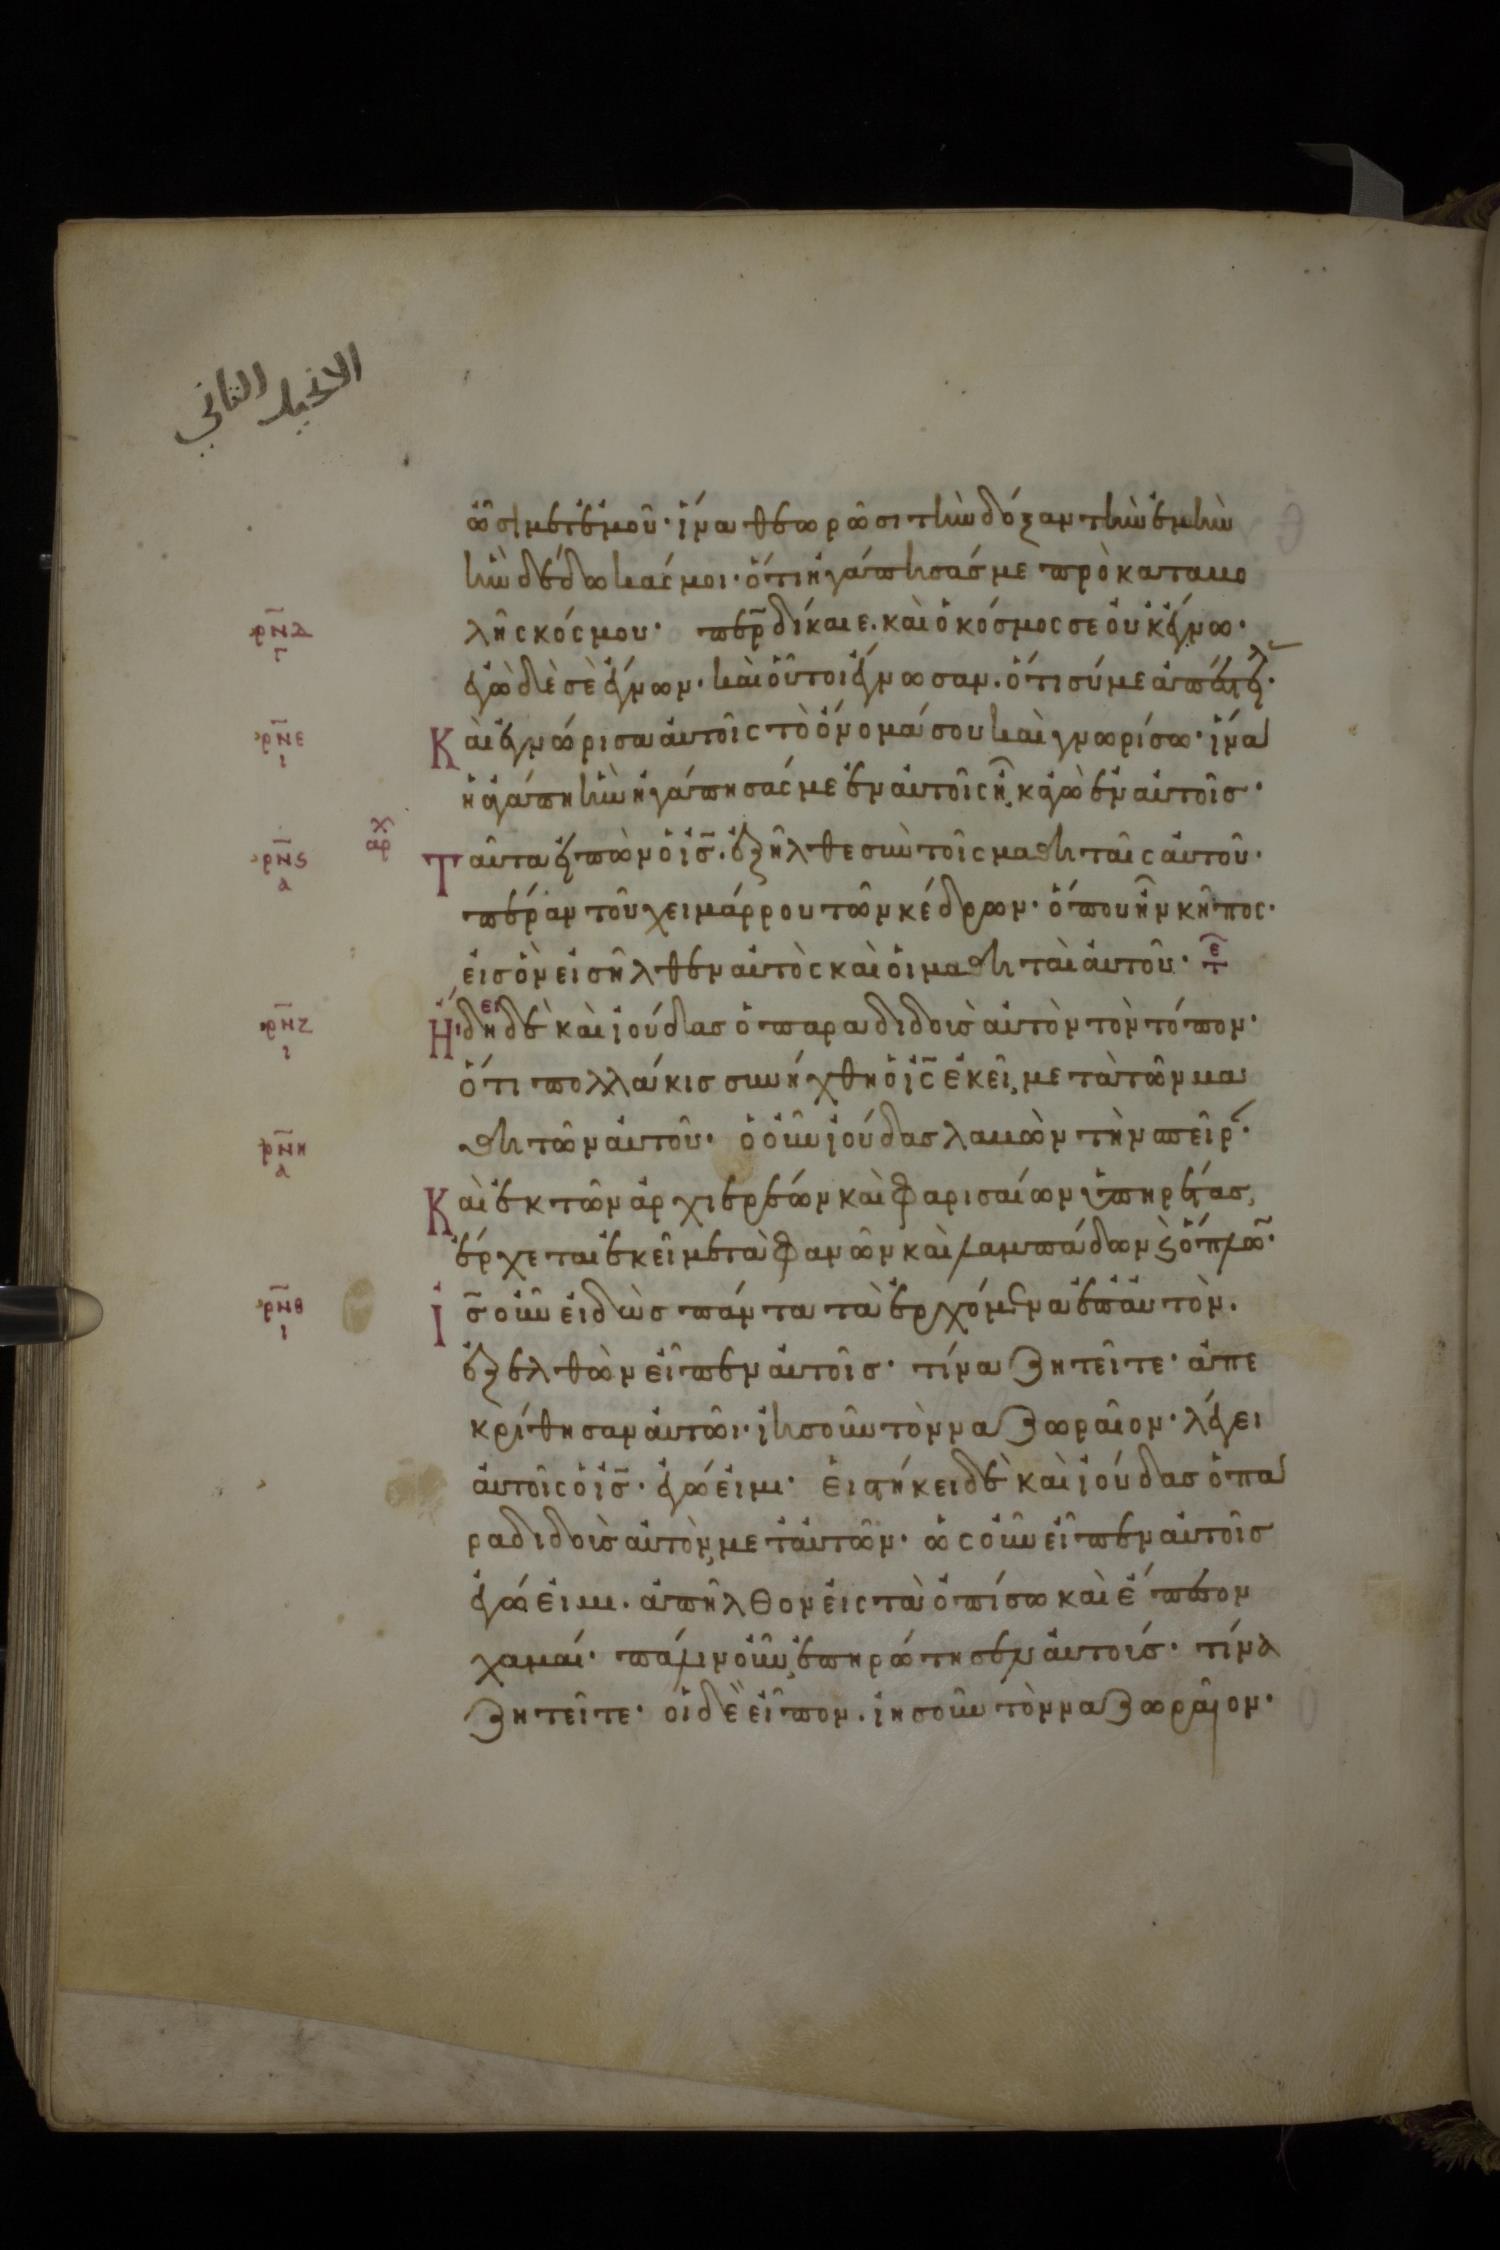 الانجيل الثاني
ὦσι μετ ἐμοῦ· ἵνα θεωρῶσι τὴν δόξαν τὴν ἐμὴν
ἣν δέδωκάς μοι· ὅτι ἠγάπησάς με πρὸ καταβο
ρνδ
γ
λῆς κόσμου· περ δίκαιε· καὶ ὁ κόσμος σε οὐκ ἔγνω·
ἐγὼ δὲ σὲ ἔγνων· καὶ οὗτοι ἔγνωσαν· ὅτι σύ με ἀπέστλ·
ρνε
ι
Καὶ ἐγνώρισα αὐτοῖς τὸ ὄνομά σου καὶ γνωρίσω· ἵνα
ἡ ἀγάπη ἣν ἠγάπησάς με ἐν αὐτοῖς ᾖ, κἀγὼ ἐν αὐτοῖς·
ρνς
α
αρχ
Ταῦτα εἰπὼν ὁ ἰς· ἐξῆλθε σὺν τοῖς μαθηταῖς αὐτοῦ·
πέραν τοῦ χειμάρρου τῶν κέδρων· ὅπου ἦν κῆπος·
εἰς ὃν εἰσῆλθεν αὐτὸς καὶ οἱ μαθηταὶ αὐτοῦ· τε
ρνζ
ι
Ἤιδη δὲ καὶ ἰούδας ὁ παραδιδοὺς αὐτὸν τὸν τόπον·
ει
ὅτι πολλάκις συνήχθη ὁ ἰς ἐκεῖ, μετὰ τῶν μα
ρνη
α
θητῶν αὐτοῦ· ὁ οὖν ἰούδας λαβὼν τὴν σπεῖρ·
Καὶ ἐκ τῶν ἀρχιερέων καὶ φαρισαίων ὑπηρέτας,
ἔρχεται ἐκεῖ μετὰ φανῶν καὶ λαμπάδων ϗ ὅπλω·
ρνθ
ι
Ἰς οὖν εἰδὼς πάντα τὰ ἐρχόμενα ἐπ αὐτὸν·
ἐξελθὼν εἶπεν αὐτοῖς· τίνα ζητεῖτε· ἀπε
κρίθησαν αὐτῶι· ἰησοῦν τὸν ναζωραῖον· λέγει
αὐτοῖς ὁ ἰς· ἐγώ εἰμι· εἱστήκει δὲ καὶ ἰούδας ὁ πα
ραδιδοὺς αὐτὸν, μετ αὐτῶν· ὡς οὖν εἶπεν αὐτοῖς
ἐγώ εἰμι· ἀπῆλθον εἰς τὰ ὀπίσω καὶ ἔπεσον
χαμαί· πάλιν οὖν, ἐπηρώτησεν αὐτοίς· τίνα
ζητεῖτε· οἱ δὲ εἶπον· ἰησοῦν τὸν ναζωραῖον·